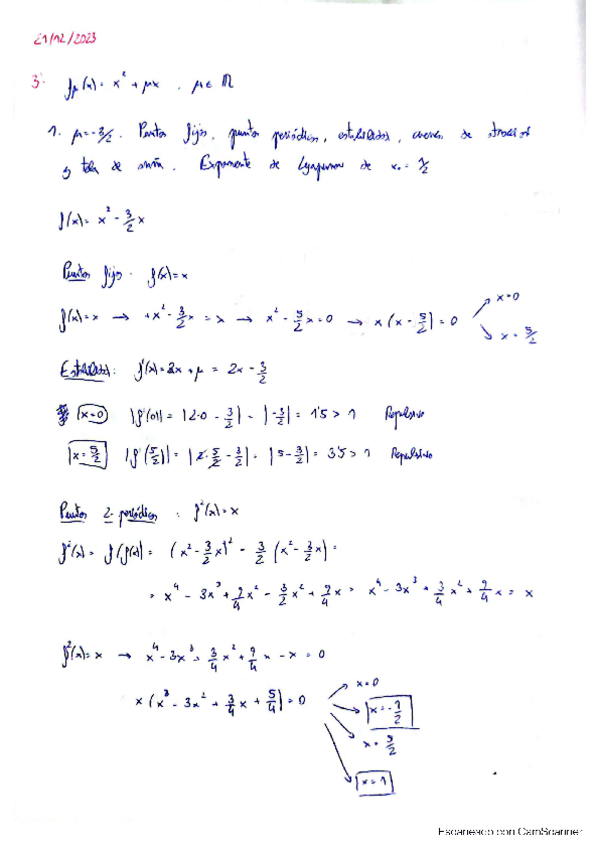 21/12/2023
3. fμ(x) = x² + μx , μ ∈ ℝ
1. μ = -3/2. Puntos fijos, puntos periódicos, estabilidad, cuencas de atracción
y tela de araña. Exponente de Lyapunov de x₀ = 1/2
f(x) = x² - 3/2 x
Puntos fijos · f(x) = x
f(x) = x → +x² - 3/2 x = x → x² - 5/2 x = 0 → x (x - 5/2) = 0
x = 0
x = 5/2
Estabilidad: f'(x) = 2x + μ = 2x - 3/2
x = 0 |f'(0)| = |2·0 - 3/2| = |-3/2| = 1'5 > 1 Repulsivo
x = 5/2 |f'(5/2)| = |2·5/2 - 3/2| = |5 - 3/2| = 3'5 > 1 Repulsivo
Puntos 2-periódicos : f²(x) = x
f²(x) = f(f(x)) = (x² - 3/2 x)² - 3/2 (x² - 3/2 x) =
= x⁴ - 3x³ + 9/4 x² - 3/2 x² + 9/4 x = x⁴ - 3x³ + 3/4 x² + 9/4 x = x
f²(x) = x → x⁴ - 3x³ + 3/4 x² + 9/4 x - x = 0
x (x³ - 3x² + 3/4 x + 5/4) = 0
x = 0
x = -1/2
x = 5/2
x = 1
Escaneado con CamScanner